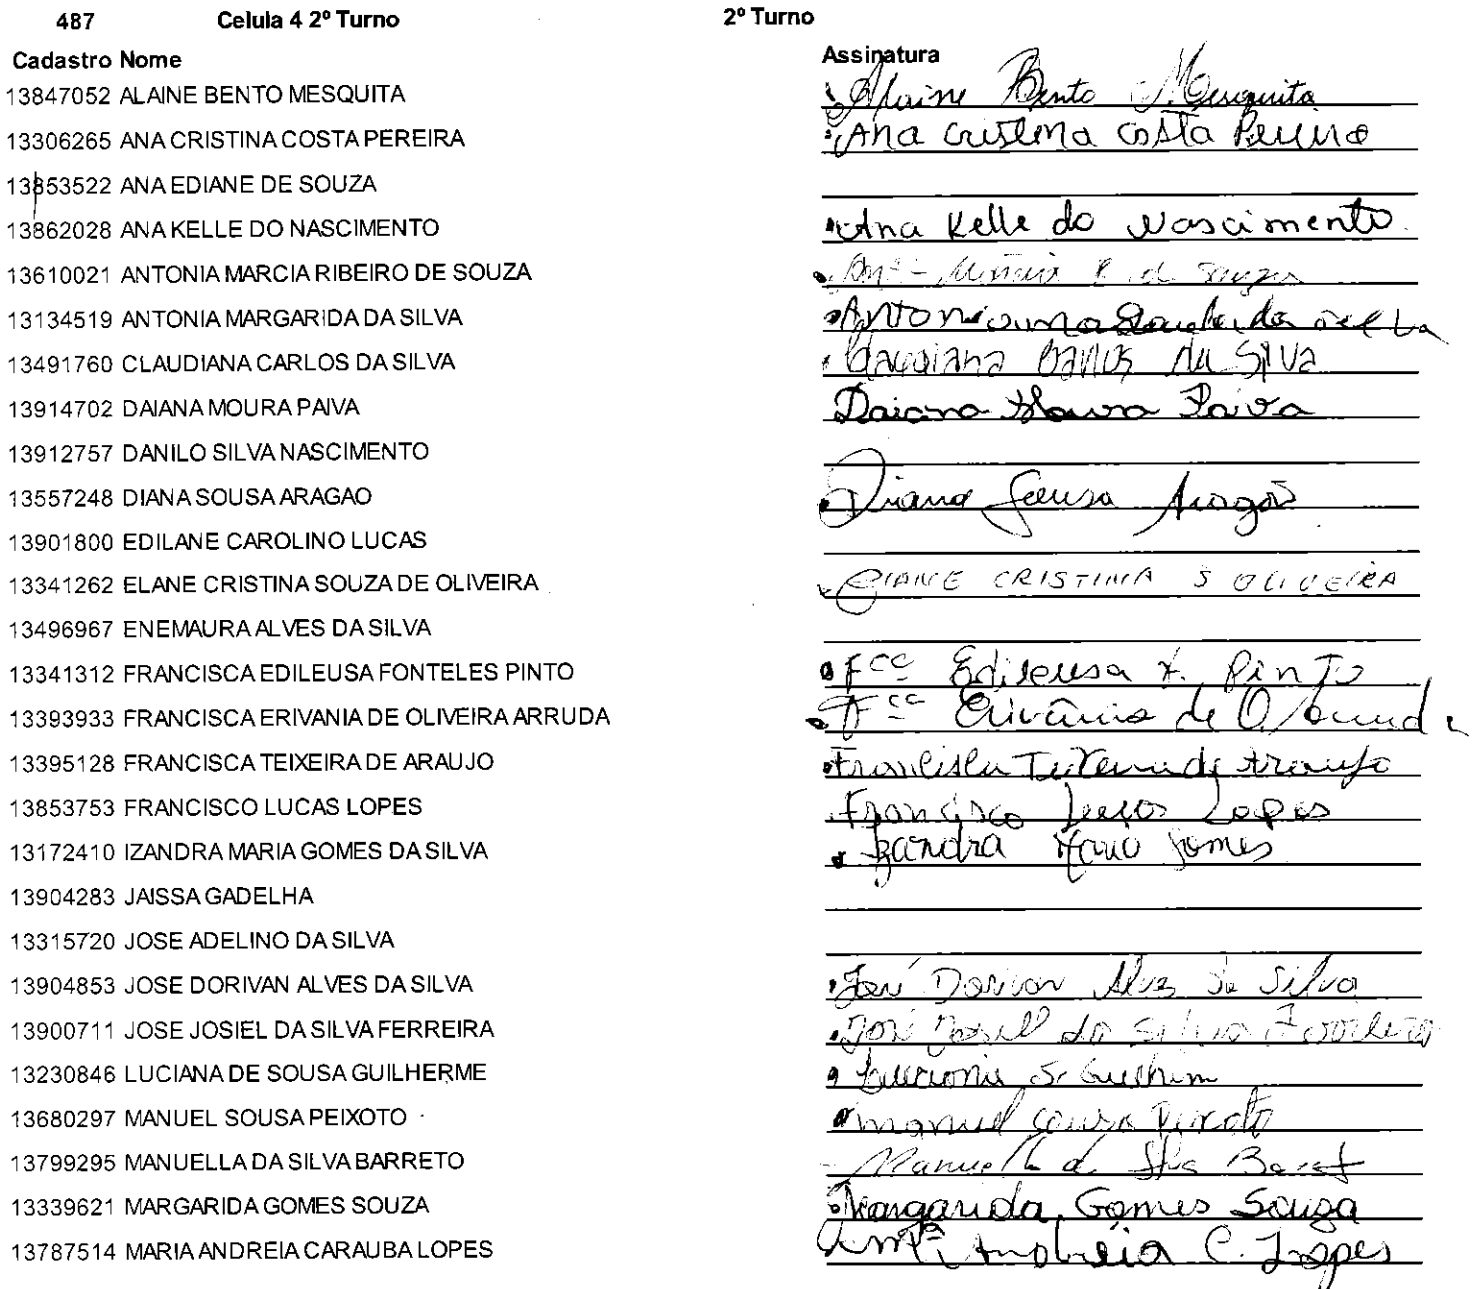 487 Celula 4 2º Turno 2º Turno
Cadastro Nome Assinatura
13847052 ALAINE BENTO MESQUITA Alaine Bento Mesquita
13306265 ANA CRISTINA COSTA PEREIRA Ana Cristina Costa Pereira
13853522 ANA EDIANE DE SOUZA
13862028 ANA KELLE DO NASCIMENTO Ana Kelle do Nascimento
13610021 ANTONIA MARCIA RIBEIRO DE SOUZA Antª Márcia R. de Souza
13134519 ANTONIA MARGARIDA DA SILVA
13491760 CLAUDIANA CARLOS DA SILVA Claudiana Carlos da Silva
13914702 DAIANA MOURA PAIVA Daiana Moura Paiva
13912757 DANILO SILVA NASCIMENTO
13557248 DIANA SOUSA ARAGAO Diana Sousa Aragão
13901800 EDILANE CAROLINO LUCAS
13341262 ELANE CRISTINA SOUZA DE OLIVEIRA ELANE CRISTINA S OLIVEIRA
13496967 ENEMAURA ALVES DA SILVA
13341312 FRANCISCA EDILEUSA FONTELES PINTO Fcª Edileusa F. Pinto
13393933 FRANCISCA ERIVANIA DE OLIVEIRA ARRUDA Fcª Erivânia de O. Arruda
13395128 FRANCISCA TEIXEIRA DE ARAUJO Francisca Teixeira de Araujo
13853753 FRANCISCO LUCAS LOPES Francisco Lucas Lopes
13172410 IZANDRA MARIA GOMES DA SILVA Izandra Maria Gomes
13904283 JAISSA GADELHA
13315720 JOSE ADELINO DA SILVA
13904853 JOSE DORIVAN ALVES DA SILVA José Dorivan Alves da Silva
13900711 JOSE JOSIEL DA SILVA FERREIRA José Josiel da Silva Ferreira
13230846 LUCIANA DE SOUSA GUILHERME Luciana S.
13680297 MANUEL SOUSA PEIXOTO manuel Sousa Peixoto
13799295 MANUELLA DA SILVA BARRETO Manuella da Silva
13339621 MARGARIDA GOMES SOUZA Margarida Gomes Souza
13787514 MARIA ANDREIA CARAUBA LOPES Mª Andreia C. Lopes